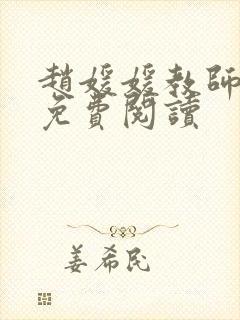 趙媛媛教師
免費閱讀
姜希民